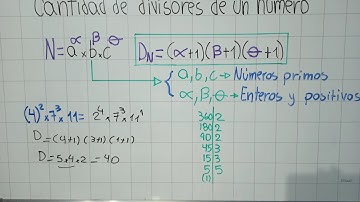 Cantidad de divisores de un número
N = a^α x b^β x c^θ
D_N = (α+1)(β+1)(θ+1)
a,b,c → Números primos
α,β,θ → Enteros y positivos
(4)² x 7³ x 11 = 2⁴ x 7³ x 11¹
D = (4+1)(3+1)(1+1)
D = 5.4.2 = 40
360 2
180 2
90 2
45 3
15 3
5 5
(1)